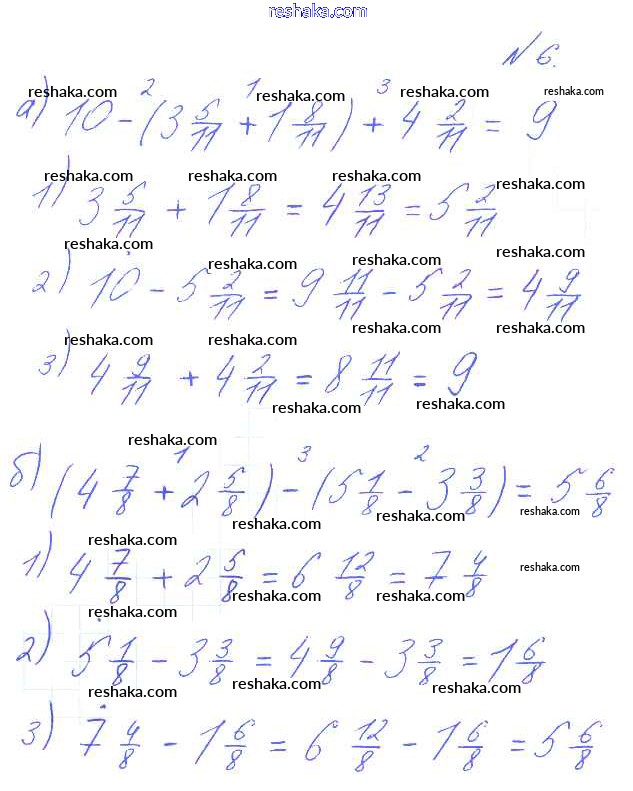 reshaka.com
N 6.
reshaka.com reshaka.com reshaka.com reshaka.com
а) 10 - (3 5/11 + 1 8/11) + 4 2/11 = 9
2 1 3
reshaka.com reshaka.com reshaka.com
1) 3 5/11 + 1 8/11 = 4 13/11 = 5 2/11
reshaka.com reshaka.com reshaka.com reshaka.com
2) 10 - 5 2/11 = 9 11/11 - 5 2/11 = 4 9/11
reshaka.com reshaka.com reshaka.com
3) 4 9/11 + 4 2/11 = 8 11/11 = 9
reshaka.com reshaka.com
reshaka.com
б) (4 7/8 + 2 5/8) - (5 1/8 - 3 3/8) = 5 6/8
1 3 2
reshaka.com reshaka.com reshaka.com
1) 4 7/8 + 2 5/8 = 6 12/8 = 7 4/8
reshaka.com reshaka.com reshaka.com reshaka.com reshaka.com
2) 5 1/8 - 3 3/8 = 4 9/8 - 3 3/8 = 1 6/8
reshaka.com reshaka.com reshaka.com
3) 7 4/8 - 1 6/8 = 6 12/8 - 1 6/8 = 5 6/8